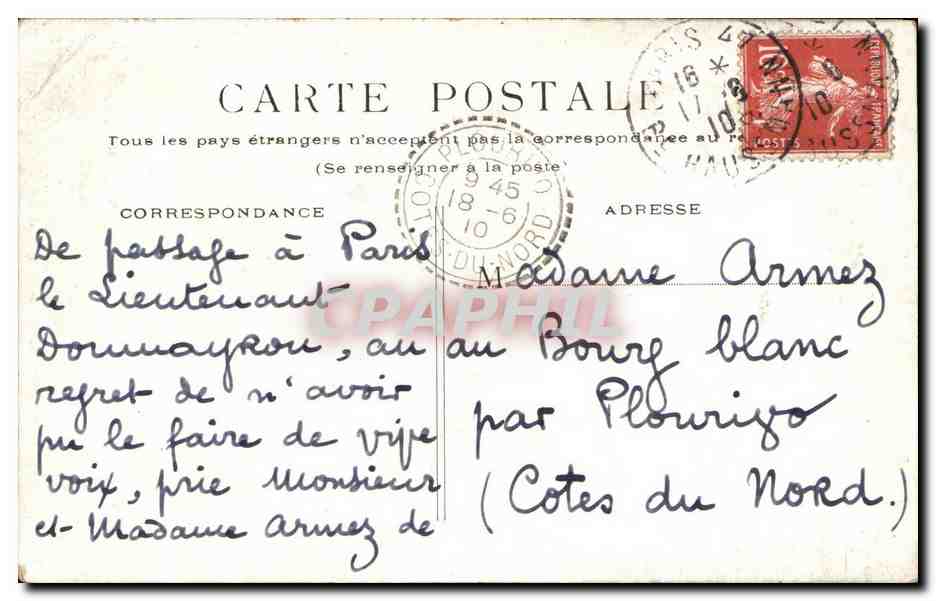 CARTE POSTALE
Tous les pays étrangers n'acceptent pas la correspondance au
(Se renseigner à la poste)
CORRESPONDANCE
De passage à Paris
le Lieutenant
Dommayrou, au
regret de n'avoir
pu le faire de vive
voix, prie Monsieur
et Madame Armez de
ADRESSE
Madame Armez
au Bourg blanc
par Plourivo
(Cotes du Nord.)
PLOURIVO
9 45
18 -6
10
COTES-DU-NORD
PARIS
16 *
17 6
10
HAUSSMANN
10c
POSTES
CPAPHIL